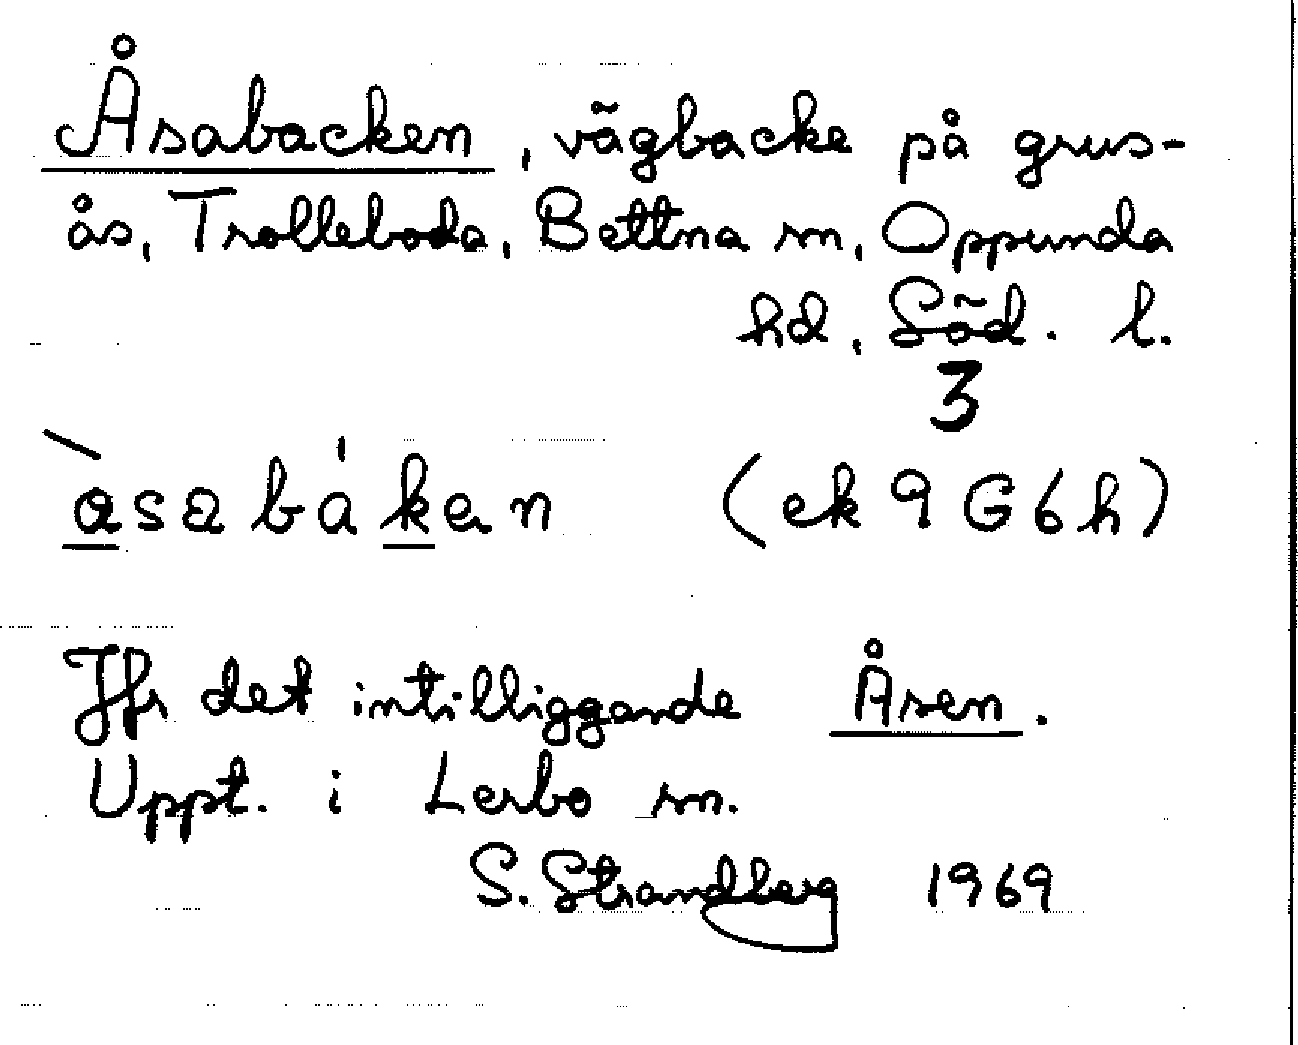 Åsabacken, vägbacke på grus-
ås, Trolleboda, Bettna sn, Oppunda
hd, Söd. l.
3
àsabákan (ek 9 G 6 h)
Jfr det intilliggande Åsen.
Uppt. i Lerbo sn.
S. Strandberg 1969